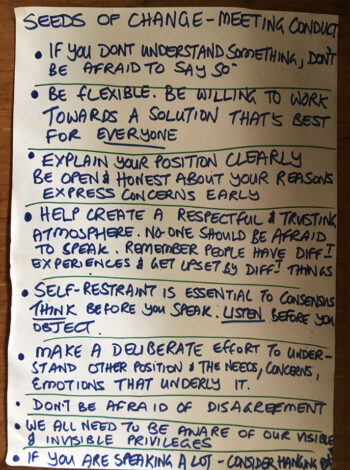 SEEDS OF CHANGE - MEETING CONDUCT
• IF YOU DONT UNDERSTAND SOMETHING, DON'T
BE AFRAID TO SAY SO
• BE FLEXIBLE. BE WILLING TO WORK
TOWARDS A SOLUTION THAT'S BEST
FOR EVERYONE
• EXPLAIN YOUR POSITION CLEARLY
BE OPEN & HONEST ABOUT YOUR REASONS
EXPRESS CONCERNS EARLY
• HELP CREATE A RESPECTFUL & TRUSTING
ATMOSPHERE. NO-ONE SHOULD BE AFRAID
TO SPEAK. REMEMBER PEOPLE HAVE DIFF T
EXPERIENCES & GET UPSET BY DIFF T THINGS
• SELF-RESTRAINT IS ESSENTIAL TO CONSENSUS
THINK BEFORE YOU SPEAK. LISTEN BEFORE YOU
OBJECT.
• MAKE A DELIBERATE EFFORT TO UNDER-
STAND OTHER POSITION & THE NEEDS, CONCERNS,
EMOTIONS THAT UNDERLY IT.
• DON'T BE AFRAID OF DISAGREEMENT
• WE ALL NEED TO BE AWARE OF OUR VISIBLE
& INVISIBLE PRIVILEGES
• IF YOU ARE SPEAKING A LOT - CONSIDER HANGING